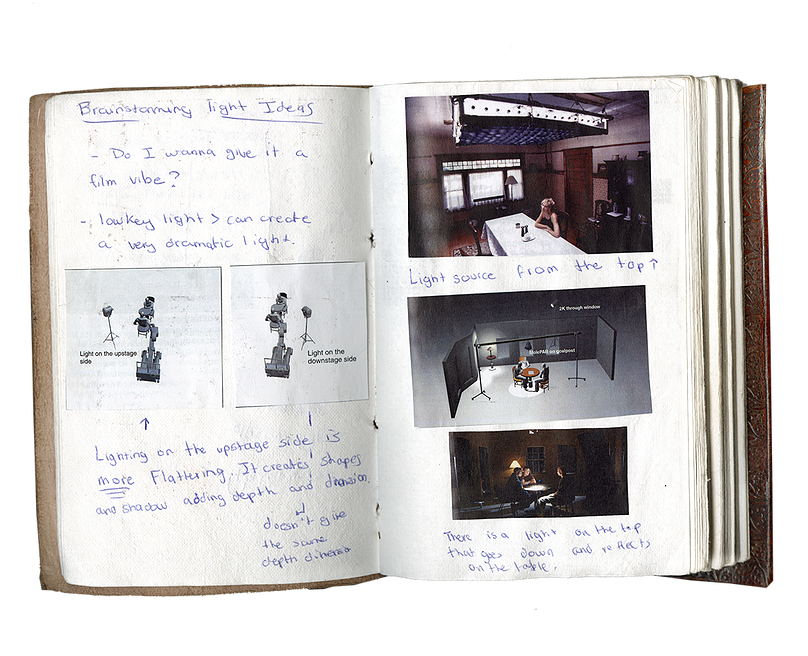 Brainstorming light Ideas
- Do I wanna give it a
film vibe?
- lowkey light > can create
a very dramatic light.
Light on the upstage
side
Light on the
downstage side
↑
Lighting on the upstage side is
more Flattering. It creates shapes
and shadow adding depth and dimension.
doesn't give
the same
depth dimensio
Light source from the top ↑
2K through window
MolePAR on goalpost
There is a light on the top
that goes down and reflects
on the table.